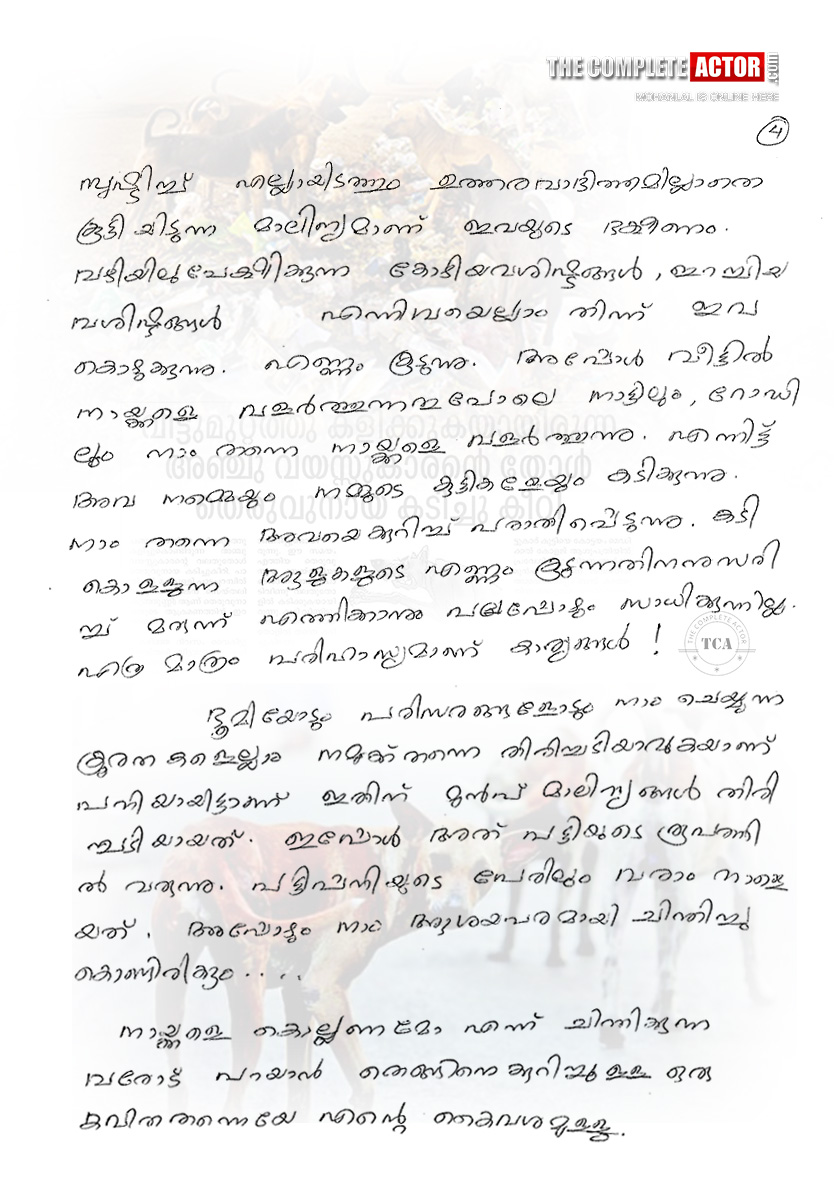 THE COMPLETE ACTOR .com
MOHANLAL IS ONLINE HERE
4
സൃഷ്ടിച്ച് എല്ലായിടത്തും ഉത്തരവാദിത്തമില്ലാതെ
കൂട്ടിയിടുന്ന മാലിന്യമാണ് ഇവയുടെ ഭക്ഷണം.
വഴിയിലുപേക്ഷിക്കുന്ന കോഴിയവശിഷ്ടങ്ങൾ, ഇറച്ചിയ
വശിഷ്ടങ്ങൾ എന്നിവയെല്ലാം തിന്ന് ഇവ
കൊഴുക്കുന്നു. എണ്ണം കൂടുന്നു. അപ്പോൾ വീട്ടിൽ
നായ്ക്കളെ വളർത്തുന്നതുപോലെ നാട്ടിലും, റോഡി
ലും നാം തന്നെ നായ്ക്കളെ വളർത്തുന്നു. എന്നിട്ട്
അവ നമ്മെയും നമ്മുടെ കുട്ടികളേയും കടിക്കുന്നു.
നാം തന്നെ അവയെക്കുറിച്ച് പരാതിപ്പെടുന്നു. കടി
കൊള്ളുന്ന ആളുകളുടെ എണ്ണം കൂടുന്നതിനനുസരി
ച്ച് മരുന്ന് എത്തിക്കാനും പലപ്പോഴും സാധിക്കുന്നില്ല.
എത്ര മാത്രം പരിഹാസ്യമാണ് കാര്യങ്ങൾ !
THE COMPLETE ACTOR
TCA
ഭൂമിയോടും പരിസരങ്ങളോടും നാം ചെയ്യുന്ന
ക്രൂരതകളെല്ലാം നമുക്ക് തന്നെ തിരിച്ചടിയാവുകയാണ്
പനിയായിട്ടാണ് ഇതിന് മുൻപ് മാലിന്യങ്ങൾ തിരി
ച്ചടിയായത്. ഇപ്പോൾ അത് പട്ടിയുടെ രൂപത്തി
ൽ വരുന്നു. പട്ടിപ്പനിയുടെ പേരിലും വരാം നാളെ
യത്. അപ്പോഴും നാം ആശയപരമായി ചിന്തിച്ചു
കൊണ്ടിരിക്കും ....
നായ്ക്കളെ കൊല്ലണമോ എന്ന് ചിന്തിക്കുന്ന
വരോട് പറയാൻ തെങ്ങിനെക്കുറിച്ചുള്ള ഒരു
കവിതതന്നെയേ എന്റെ കൈവശമുള്ളൂ.